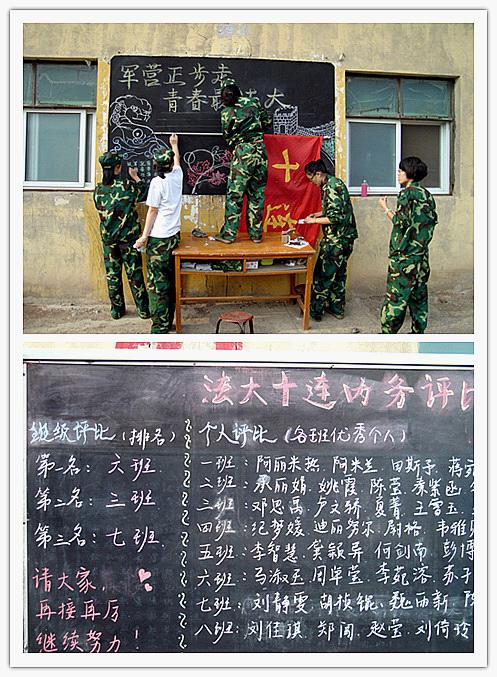 军营正步走
青春最法大
十
连
法大十连内务评比
班级评比（排名）
第一名：六班
第二名：三班
第三名：七班
请大家，
再接再厉
继续努力！
个人评比（各班优秀个人）
一班：阿丽米热 阿米兰 田斯予 蒋
二班： 丽娟 姚霞 陈莹 紫函
三班：邓思禹 卢文骄 夏菁 王雪玉
四班：纪梦媛 迪丽努尔 尉格 韦雅
五班：李智慧 冀颖异 何剑南 彭博
六班：马淑玉 周卓莹 李苑溶 苏子
七班：刘静雯 胡桢锟 魏雨新 陈
八班：刘佳琪 郑闻 赵莹 刘倚玲